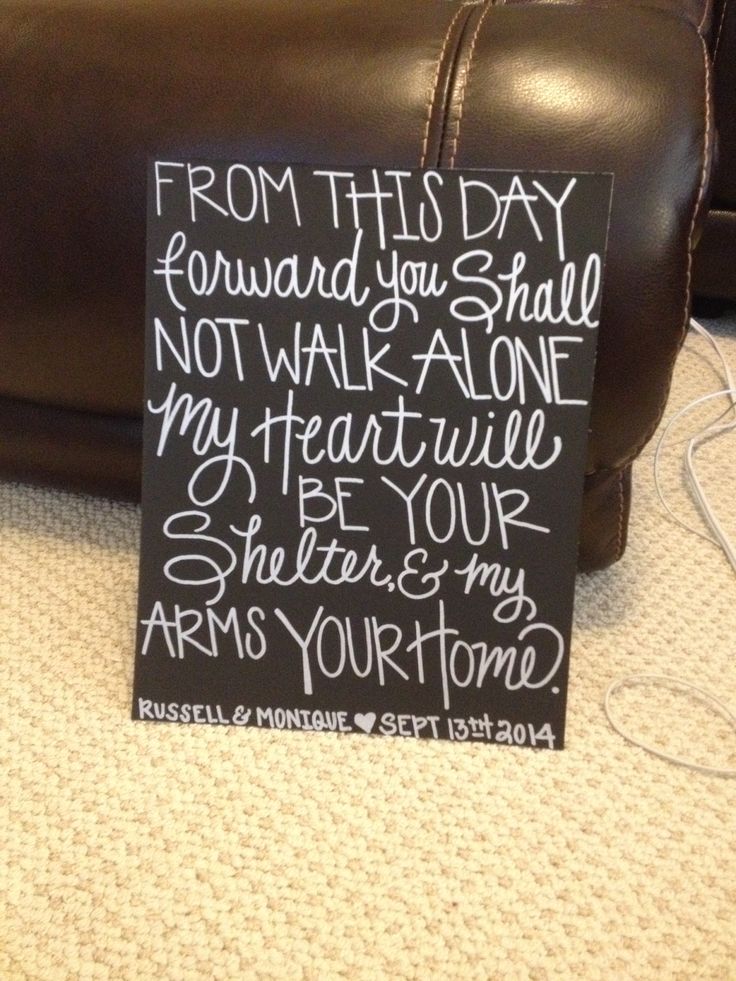 FROM THIS DAY
forward you Shall
NOT WALK ALONE
My Heart will
BE YOUR
Shelter, & my
ARMS YOUR Home.
RUSSELL & MONIQUE ♥ SEPT 13TH 2014